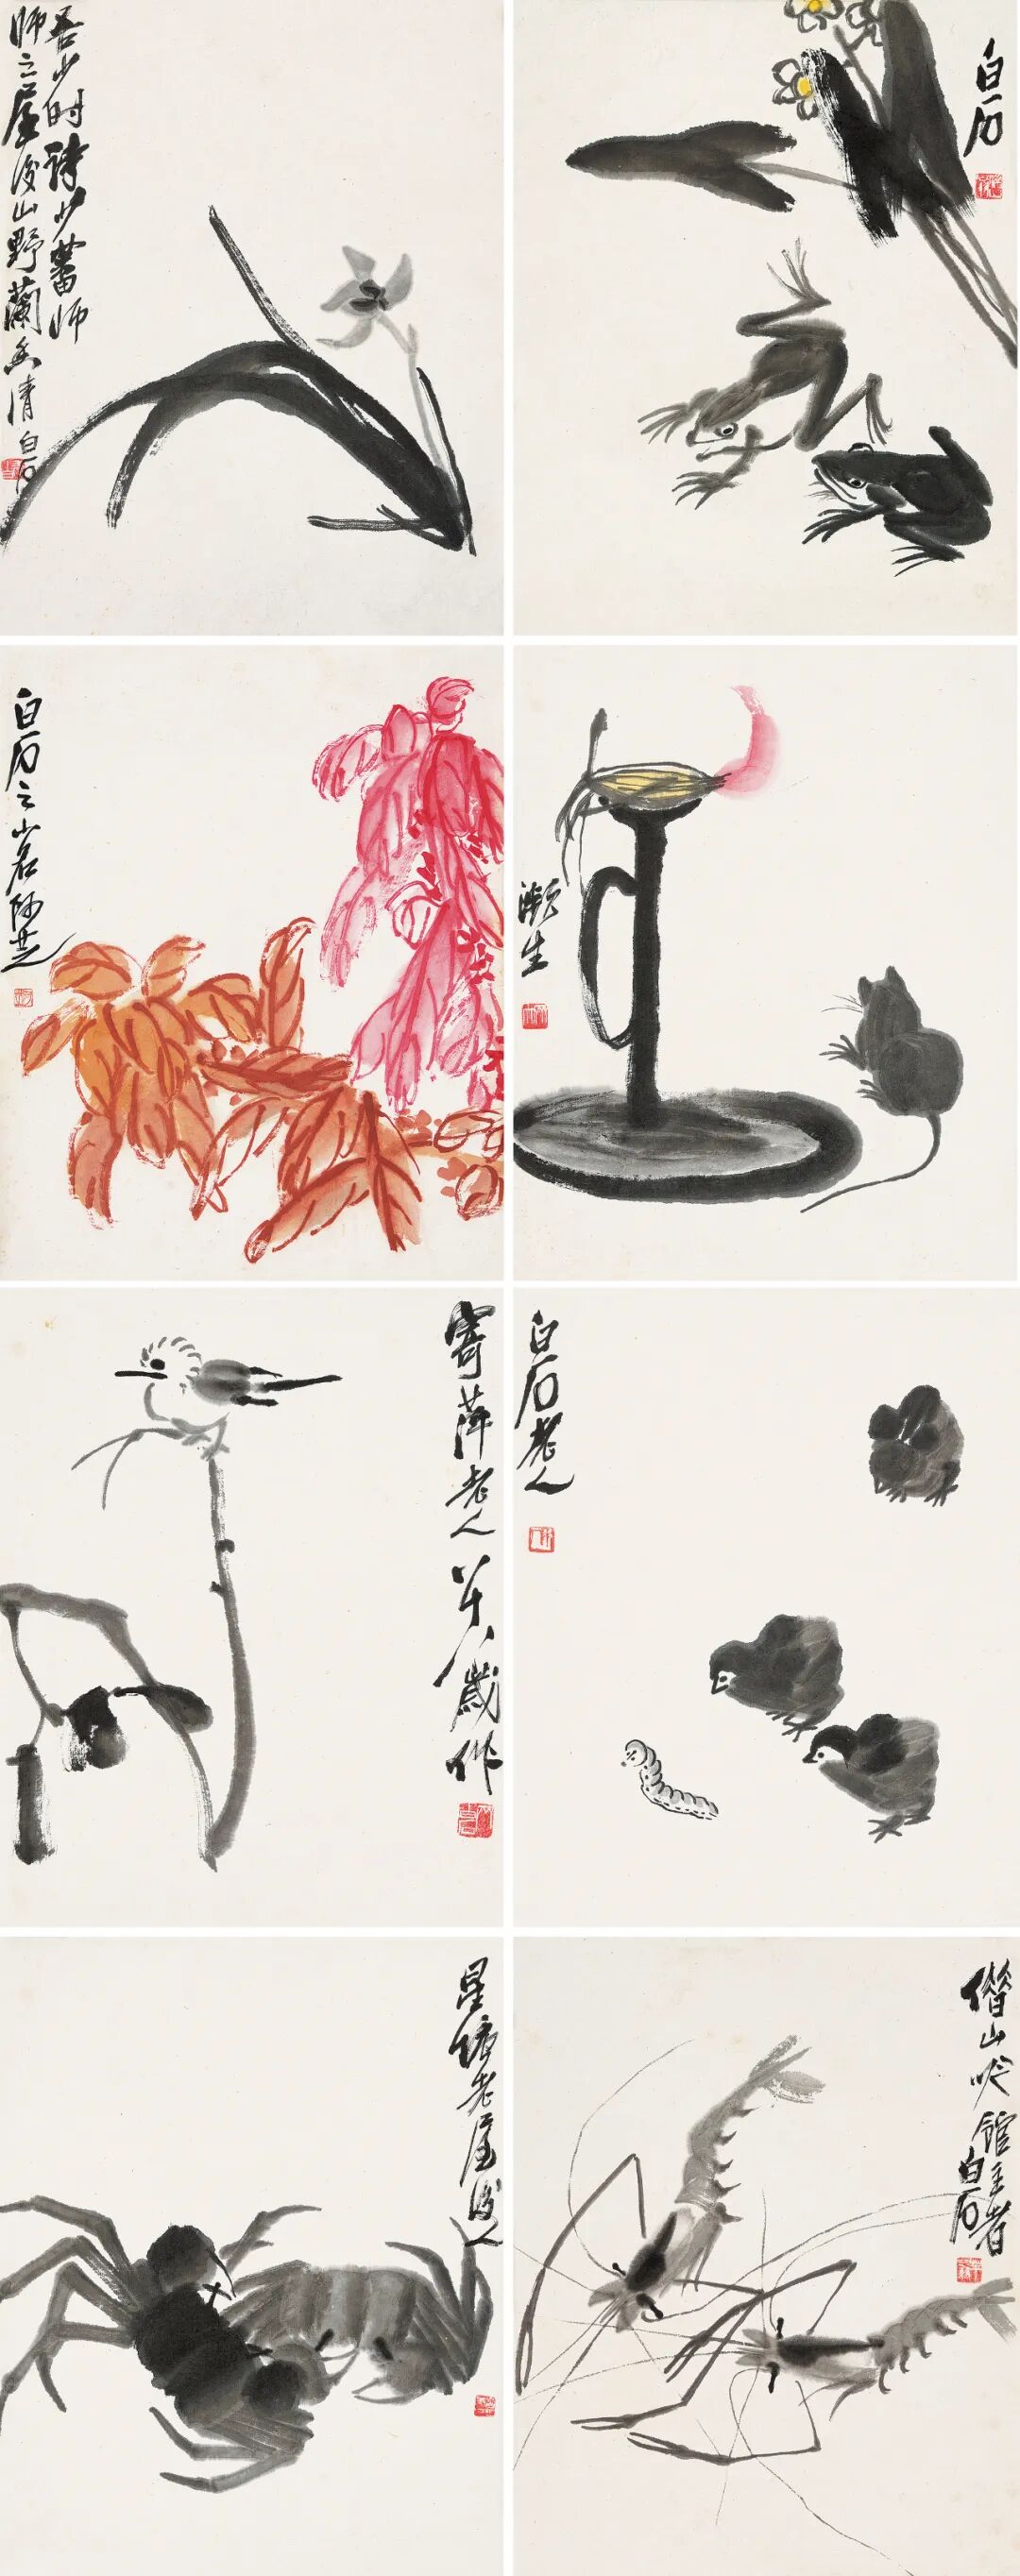 吾少时詩少蕃师
师之屋後山野蘭清白石
白石
白石之小名阿芝
瀕生
寄萍老人八十八歲作
白石老人
星塘老屋後人
借山吟館主者
白石